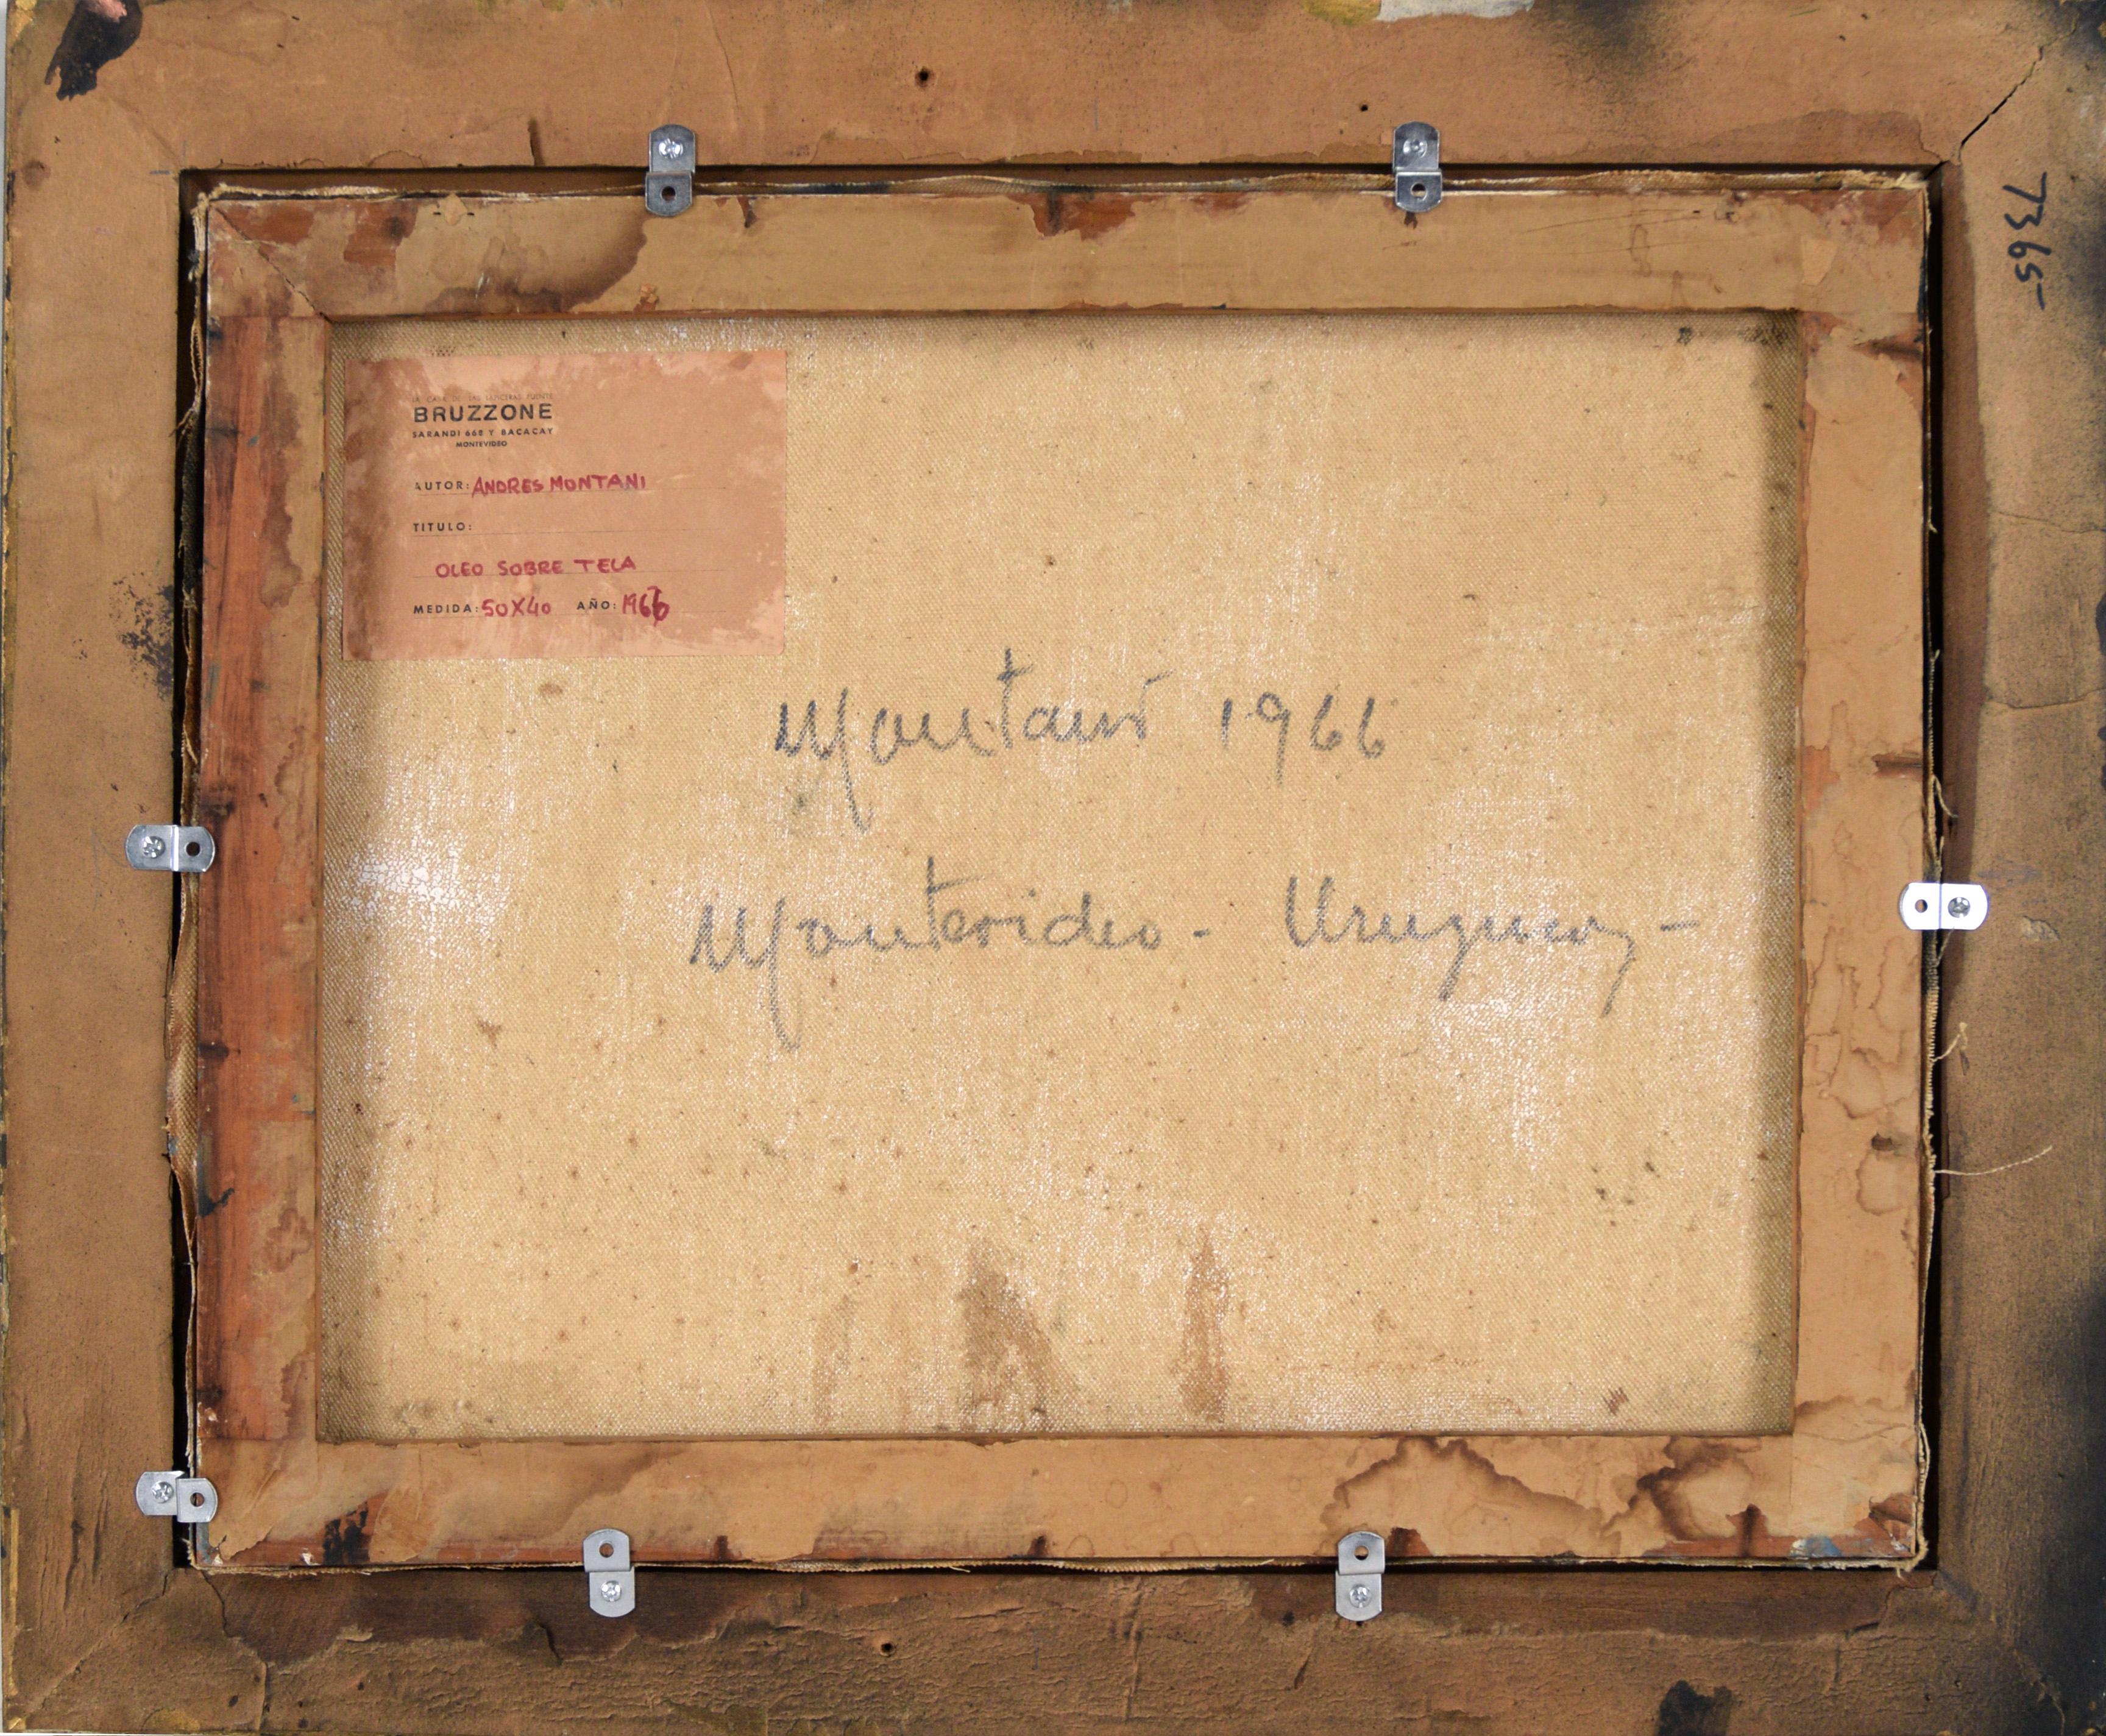 BRUZZONE
SARANDI 668 Y BACACAY
MONTEVIDEO
AUTOR: ANDRES MONTANI
TITULO:
OLEO SOBRE TELA
MEDIDA: 50X40 AÑO: 1966
Montani 1966
Montevideo - Uruguay -
7365-